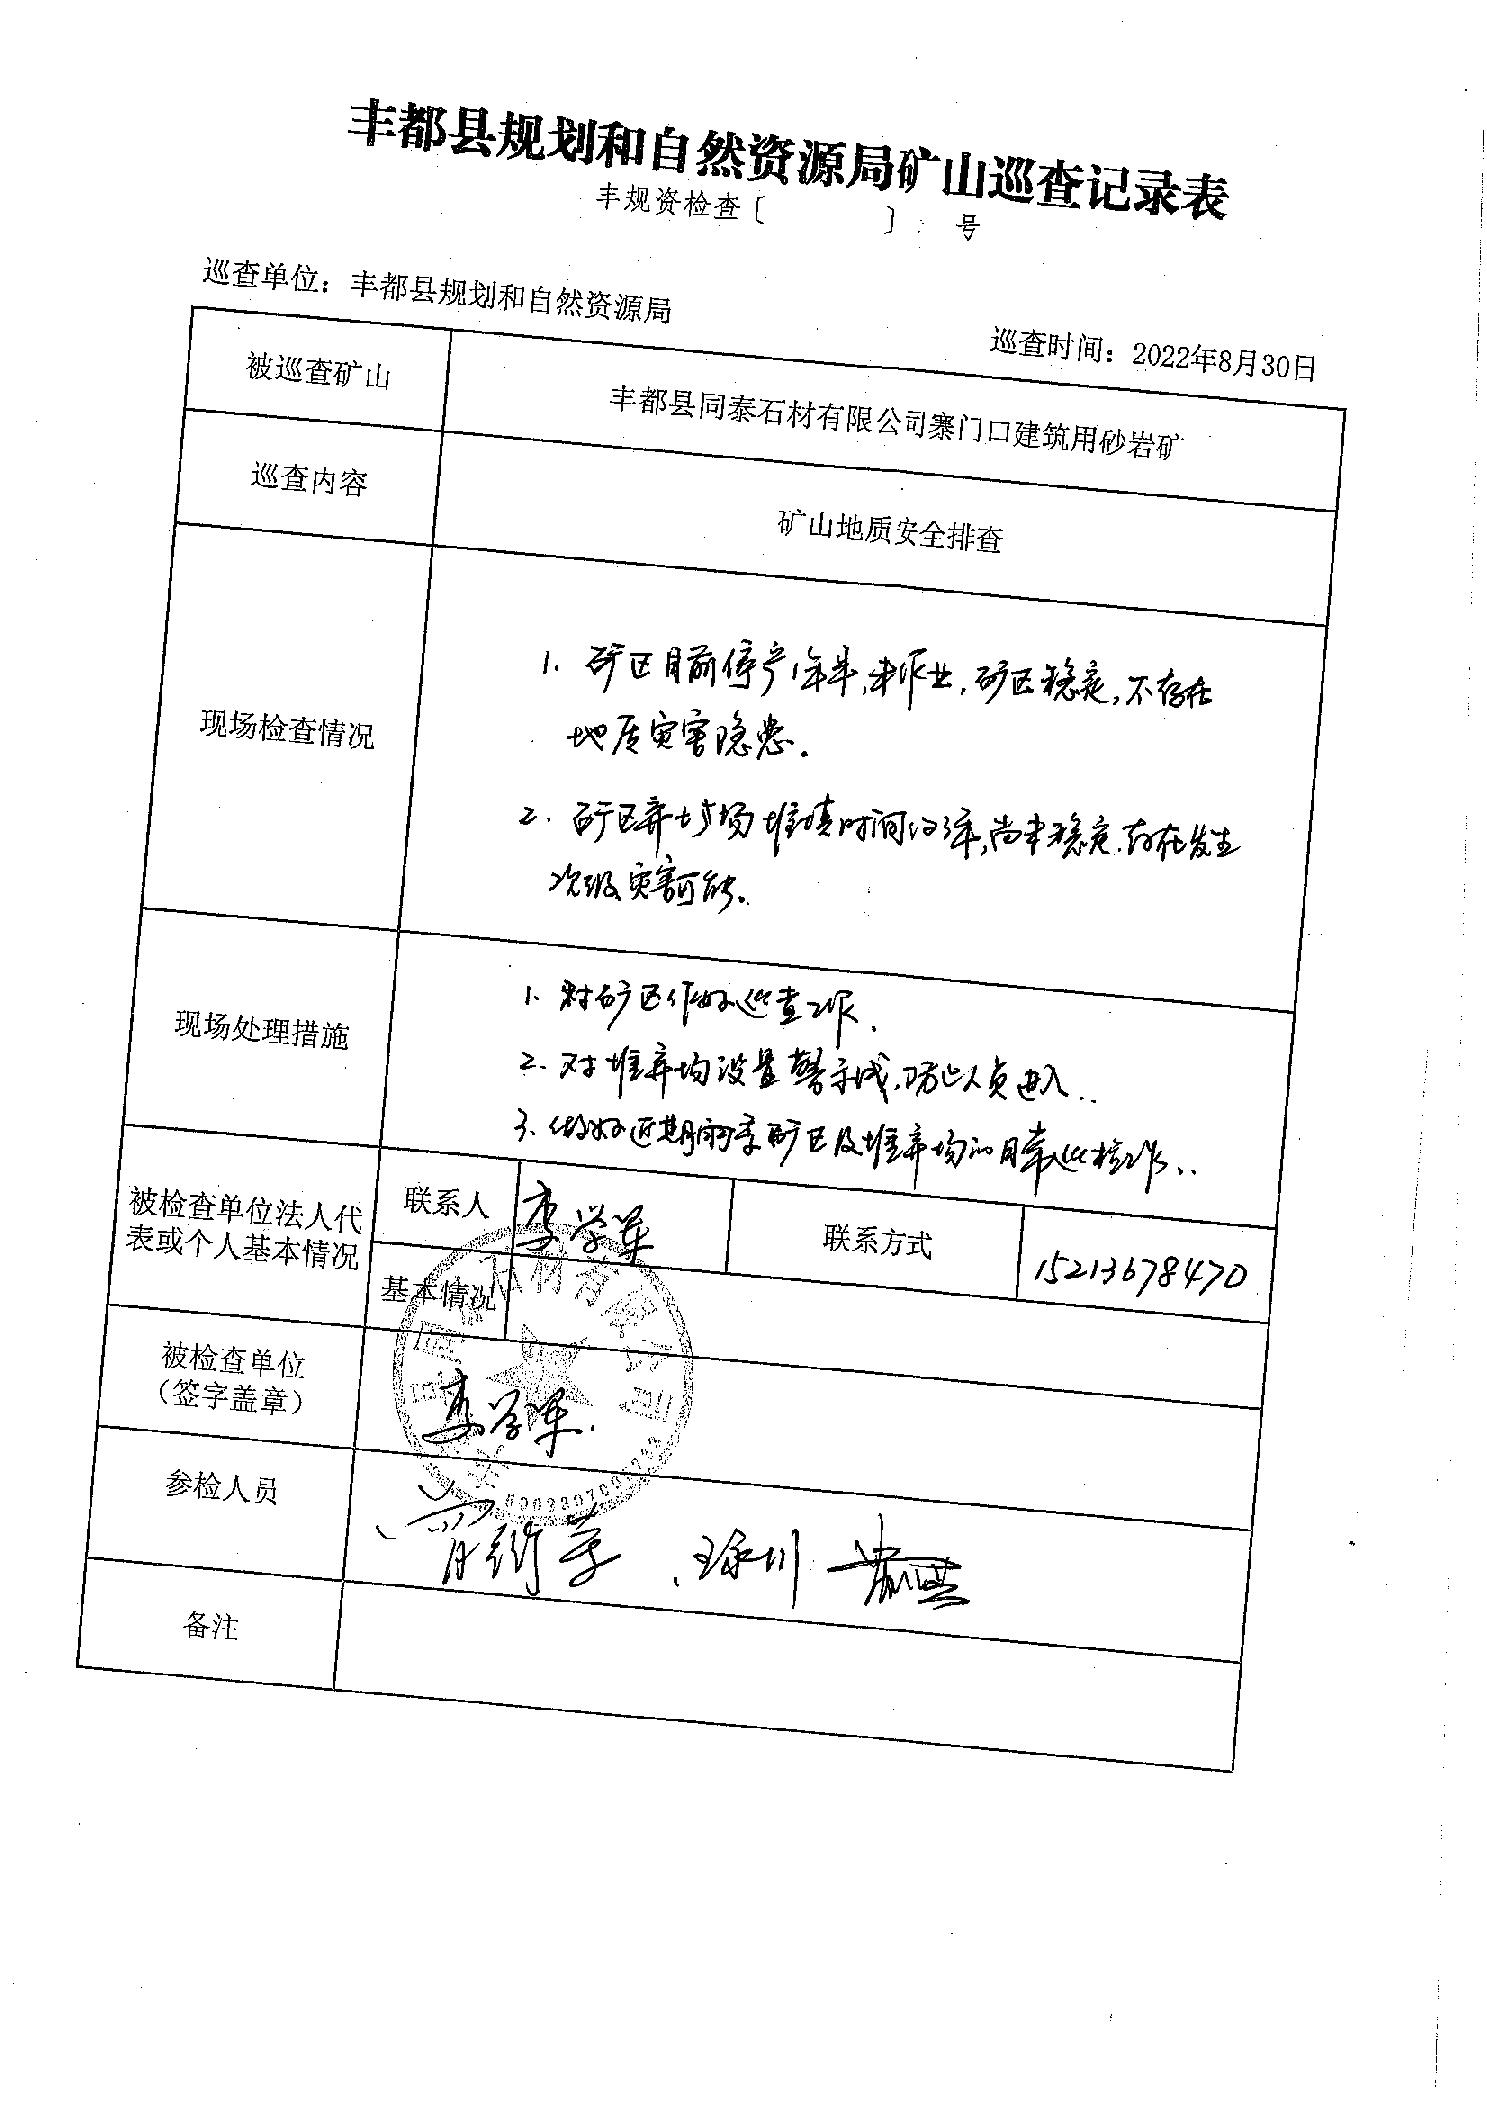 丰都县规划和自然资源局矿山巡查记录表
丰规资检查〔 〕 号
巡查单位：丰都县规划和自然资源局
巡查时间：2022年8月30日
被巡查矿山
丰都县同泰石材有限公司寨门口建筑用砂岩矿
巡查内容
矿山地质安全排查
现场检查情况
1. 矿区目前停产1年半,未作业,矿区稳定,不存在
地质灾害隐患.
2. 矿区弃土场堆填时间约3年,尚未稳定.存在发生
次级灾害可能.
现场处理措施
1. 对矿区作好巡查工作.
2. 对堆弃场设置警示线,防止人员进入..
3. 做好近期雨季矿区及堆弃场的日常巡检工作..
被检查单位法人代
表或个人基本情况
联系人
李学军
联系方式
15213678470
基本情况
被检查单位
（签字盖章）
李学军.
参检人员
备注